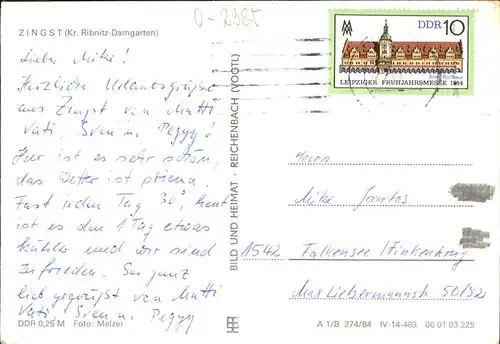 0-2385
ZINGST (Kr. Ribnitz-Damgarten)
Lieber Mike!
Herzliche Urlaubsgrüße
aus Zingst von Mutti
Vati, Sven u. Peggy!
Hier ist es sehr schön,
das Wetter ist prima.
Fast jeden Tag 30°, heut
ist es den 1 Tag etwas
kühler und wir sind
Zufrieden. Sei ganz
lieb gegrüßt von Mutti
Vati, Sven u. Peggy
DDR 0,25 M Foto: Melzer
BILD UND HEIMAT · REICHENBACH (VOGTL)
DDR 10
Altes Rathaus
LEIPZIGER FRÜHJAHRSMESSE 1984
Herrn
Mike
1542 Falkensee/Finkenkrug
Max Liebermannstr. 50/52
A 1/B 274/84 IV-14-483 06 01 03 225